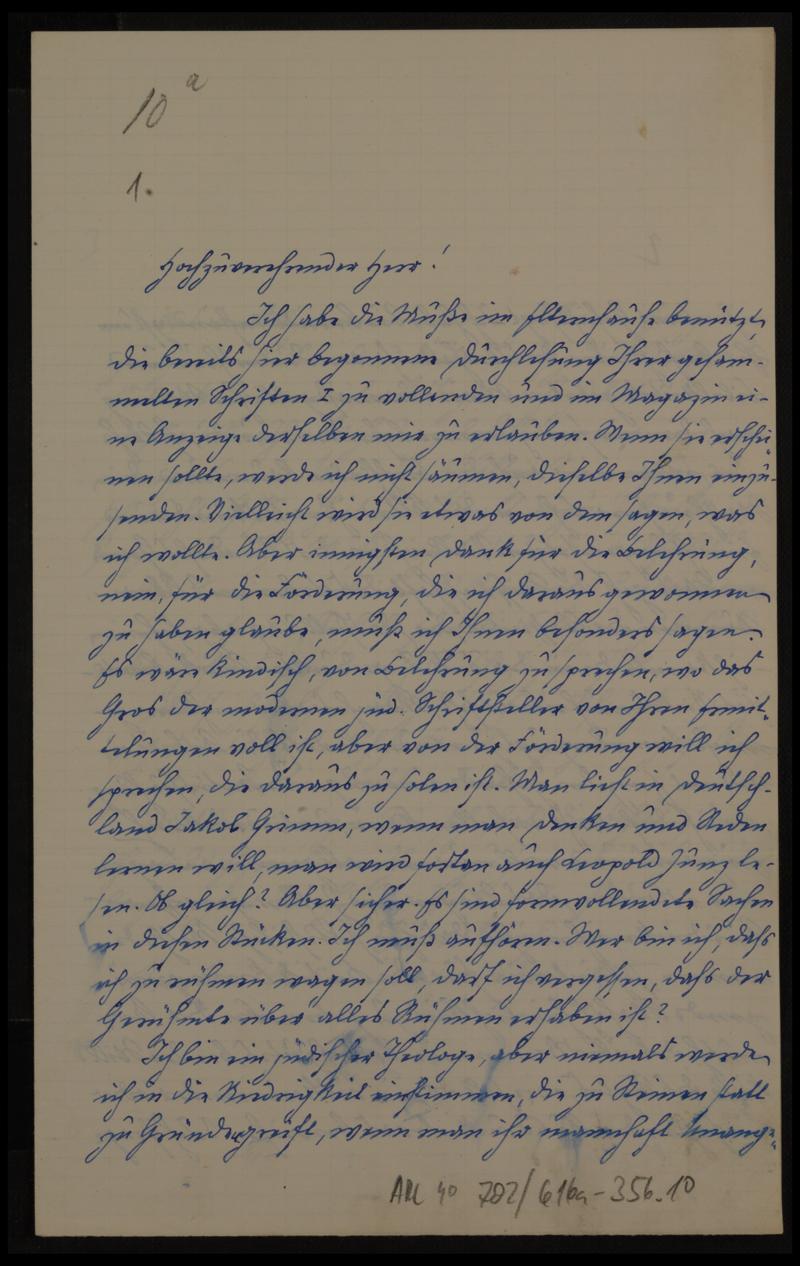 10 a
1.
Hochzuverehrender Herr!
Ich habe die Muße im Elternhause benützt,
die bereits hier begonnene Durchlesung Ihrer gesam-
melten Schriften I zu vollenden und im Magazin ei-
ne Anzeige derselben mir zu erlauben. Wenn sie erschei-
nen sollte, werde ich nicht säumen, dieselbe Ihnen einzu-
senden. Vielleicht wird sie etwas von dem sagen, was
ich wollte. Aber innigsten Dank für die Belehrung,
nein, für die Förderung, die ich daraus gewonnen
zu haben glaube, muß ich Ihnen besonders sagen.
Es wäre kindisch, von Belehrung zu sprechen, wo das
Gros der modernen jüd. Schriftsteller von Ihren Ermit-
telungen voll ist, aber von der Förderung will ich
sprechen, die daraus zu holen ist. Man liest in Deutsch-
land Jakob Grimm, wenn man Denken und Reden
lernen will, man wird fortan auch Leopold Zunz le-
sen. Ob gleich? Aber sicher. Es sind formvollendete Sachen
in diesen Stücken. Ich muß aufhören. Wer bin ich, daſs
ich zu rühmen wagen soll, darf ich vergessen, daſs der
Gerühmte über alles Rühmen erhaben ist?
Ich bin ein jüdischer Theologe, aber niemals werde
ich in die Niedrigkeit einstimmen, die zu Steinen statt
zu Gründen greift, wenn man ihr mannhaft Unange-
AR 4° 792/G16a-356.10